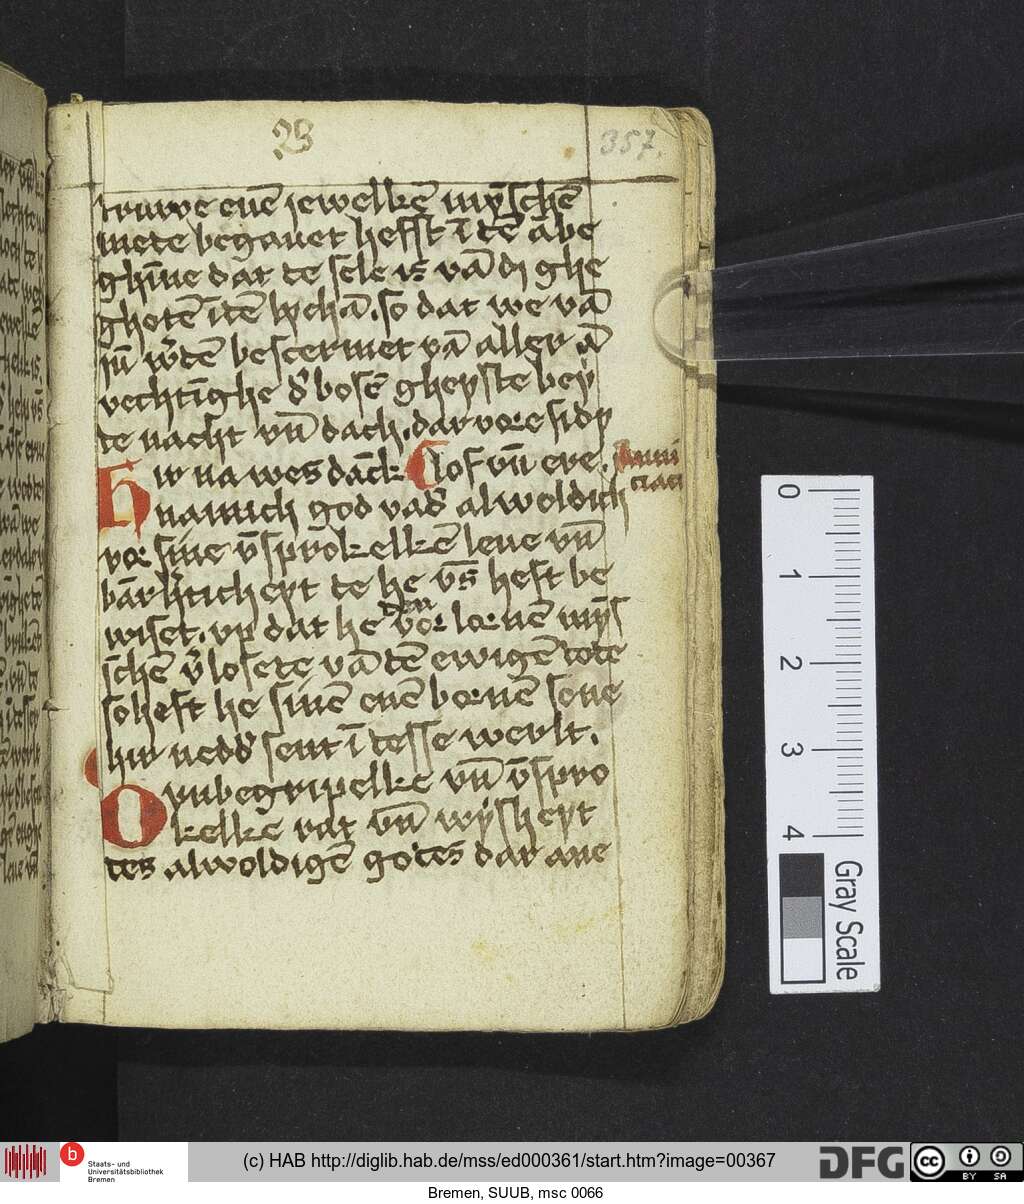 357.
truwe enē jewelkē mȳschē
mete begauet hefft ī tē ābe
ghīne dat te sele is vā di ghe
ghotē ītē lychā. so dat we vā
jū w'dē bescermet vā aller ā
vechtīghe d' bosē gheyste bey
te nacht vn̄ dach. dar vore sidy
H ir na wes dāck Lof vn̄ ere. Annū
namich god vad' alwoldich ciaci
vor sine v̄sprokelkē leue vn̄
bārh'tich eyt te he v̄s heft be
wiset. vp dat he den vor lornē mȳs
schē v'losete vā tē ewigē tote
so heft he sinē enē bornē sone
hir nedd' sent ī tesse werlt.
O vnbegripelke vn̄ v̄spro
kelke rat vn̄ wijsheyt
tes alwoldigē gotes dar ane
0 1 2 3 4
Gray Scale
b
Staats- und
Universitätsbibliothek
Bremen
(c) HAB http://diglib.hab.de/mss/ed000361/start.htm?image=00367
DFG
cc BY SA
Bremen, SUUB, msc 0066